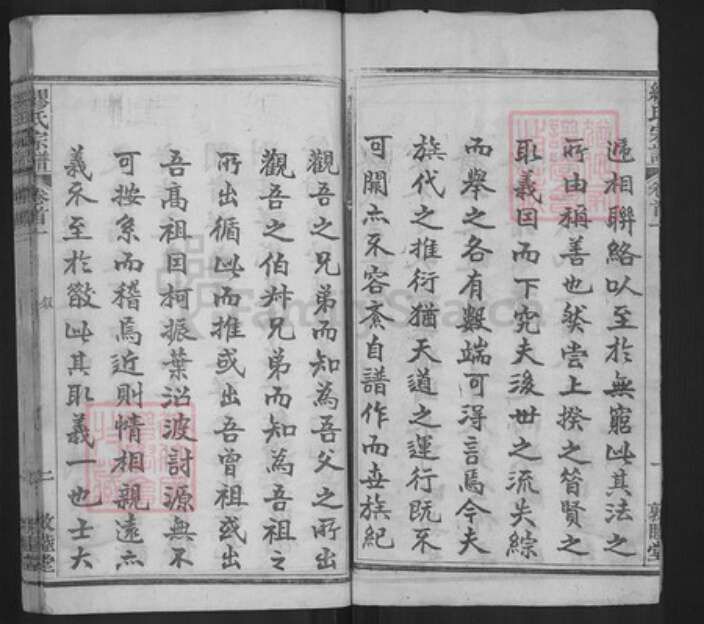 繆氏宗譜
卷首一
遞相聯絡以至扵無窮此其法之
所由稱善也然嘗上揆之答賢之
取義因而下究夫後世之流失綜
而舉之各有數端可得言焉今夫
族代之推衍猶天道之運行既不
可闕亦不容紊自譜作而世族紀
觀吾之兄弟而知為吾父之所出
觀吾之伯叔兄弟而知為吾祖之
所出循此而推或出吾曾祖或出
吾高祖因柯振葉沿波討源無不
可按系而稽焉近則情相親遠亦
義不至扵散此其取義一也士大
繆氏宗譜
卷首一
敘
二
敦睦堂
FamilySearch